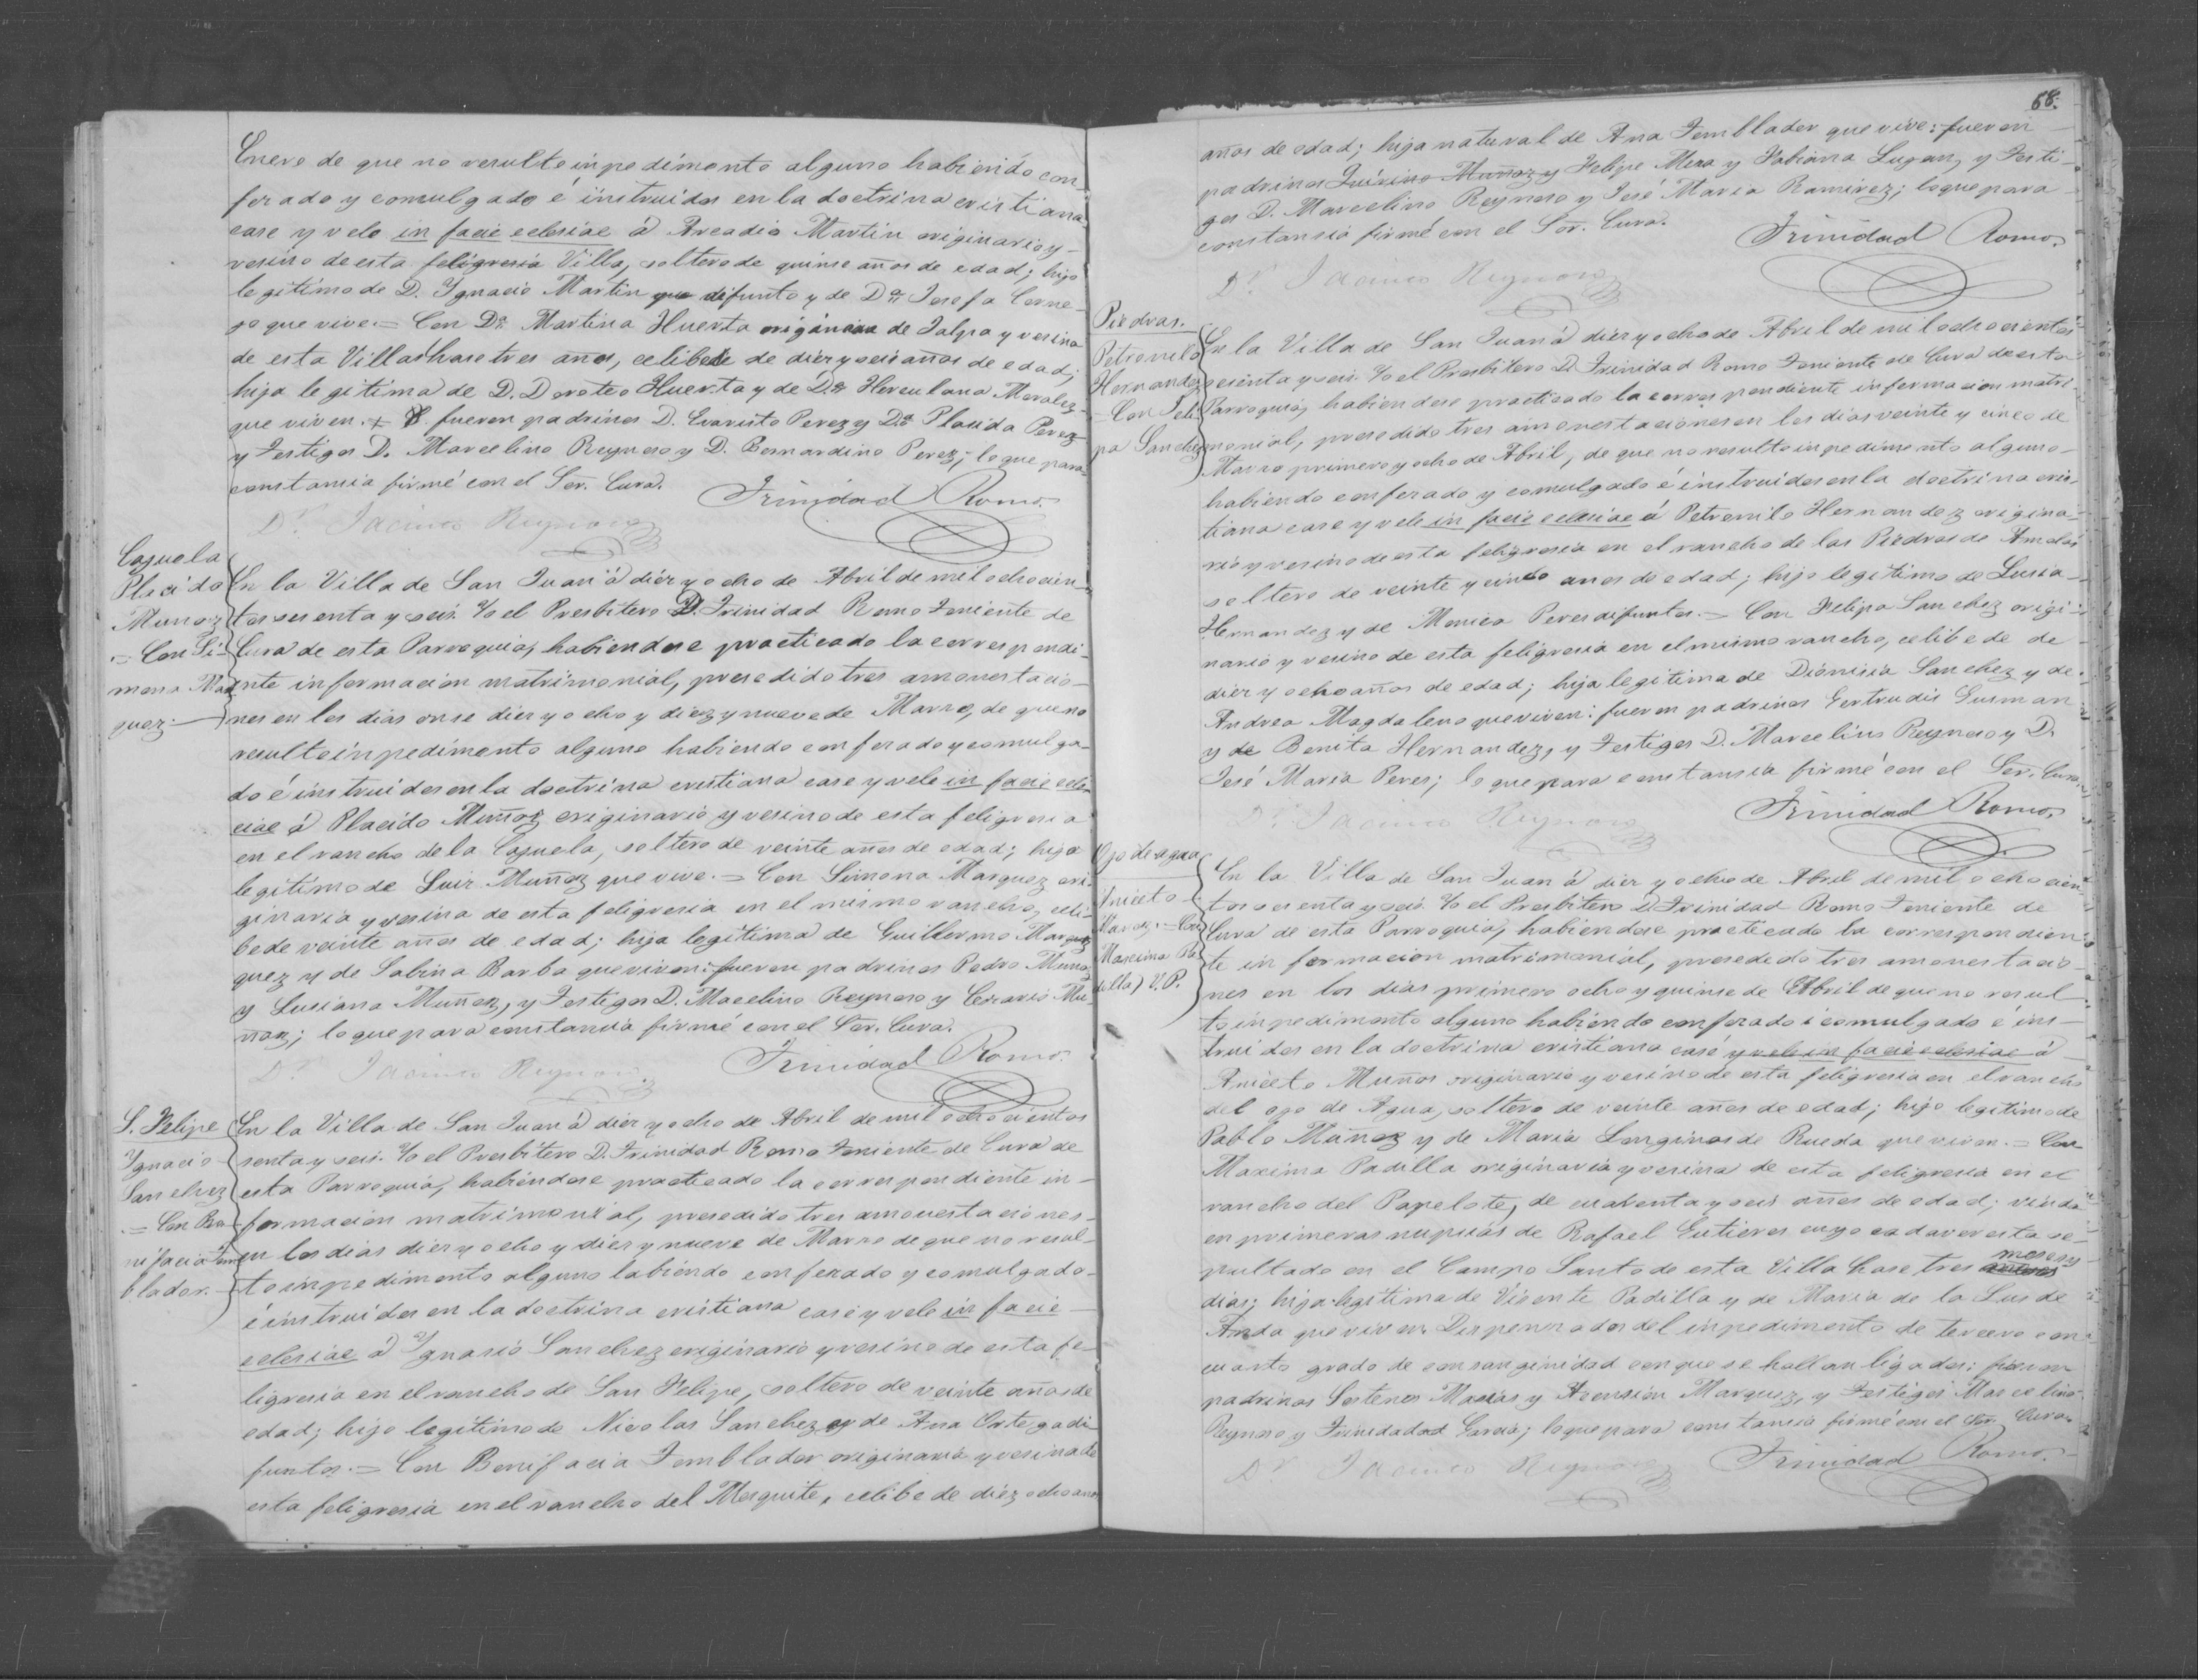 Enero de que no resulto inpedimento alguno habiendo con-
fesado y comulgado é instruidos en la doctrina cristiana
case y vele in facie eclesiae á Arcadio Martin originario y
vesino de esta feligresia Villa, soltero de quinse años de edad; hijo
legitimo de D. Ygnacio Martin que difunto y de Dª Josefa Corne-
jo que vive.= Con Dª Martina Huerta originaria de Jalpa y vesina
de esta Villa hase tres años, celibe de diez y seis años de edad;
hija legitima de D. Doroteo Huerta y de Dª Herculana Morales
que viven. fueron padrinos D. Evaristo Perez y Dª Placida Perez
y Testigos D. Marcelino Reynoso y D. Bernardino Perez; lo que para
constansia firmé con el Sor. Cura.
Trinidad Romo.
Dr. Jacinto Reynoso
Cajuela
Placido
Munoz
= Con Si-
mona Mar
quez.
En la Villa de San Juan á diez y ocho de Abril de mil ochocien-
tos sesenta y seis. Yo el Presbitero D. Trinidad Romo Teniente de
Cura de esta Parroquia, habiendose practicado la correspondi-
ente informacion matrimonial, presedido tres amonestacio-
nes en los dias onse diez y ocho y diez y nueve de Marzo, de que no
resulto inpedimento alguno habiendo confesado y comulga-
do é instruidos en la doctrina cristiana case y vele in facie ecle-
ciae á Placido Muñoz originario y vesino de esta feligresia
en el rancho de la Cajuela, soltero de veinte años de edad; hijo
legitimo de Luis Muñoz que vive.= Con Simona Marquez ori-
ginaria y vesina de esta feligresia en el mismo rancho, celi-
be de veinte años de edad; hija legitima de Guillermo Mar
quez y de Sabina Barba que viven: fueron padrinos Pedro Muñoz
y Lusiana Muñoz, y Testigos D. Macelino Reynoso y Cesario Mu-
ñoz; lo que para constansia firmé con el Sor. Cura.
Trinidad Romo.
Dr. Jacinto Reynoso
S. Felipe
Ygnacio
Sanchez
= Con Bo-
nifacia Tem
blador.
En la Villa de San Juan á diez y ocho de Abril de mil ochocientos
senta y seis. Yo el Presbitero D. Trinidad Romo Teniente de Cura de
esta Parroquia, habiendose practicado la correspondiente in-
formacion matrimonial, presedido tres amonestaciones
en los dias diez y ocho y diez y nueve de Marzo de que no resul-
to inpedimento alguno habiendo confesado y comulgado
é instruidos en la doctrina cristiana case y vele in facie
eclesiae á Ygnasio Sanchez originario y vesino de esta fe-
ligresia en el rancho de San Felipe, soltero de veinte años de
edad; hijo legitimo de Nicolas Sanchez y de Ana Ortega di-
funtos.= Con Bonifacia Temblador originaria y vesina de
esta feligresia en el rancho del Mesquite, celibe de diez ocho anos
68.
años de edad; hija natural de Ana Temblador que vive: fueron
padrinos Quirino Muñoz y Felipe Mesa y Fabiana Lugan, y Testi-
gos D. Marcelino Reynoso y José Maria Ramirez; lo que para
constansia firmé con el Sor. Cura.
Trinidad Romo.
Dr. Jacinto Reynoso
Piedras.
Petronilo
Hernandez
= Con Feli-
pa Sanchez
En la Villa de San Juan á diez y ocho de Abril de mil ochocientos
sesenta y seis. Yo el Presbitero D. Trinidad Romo Teniente de Cura de esta
Parroquia, habiendose practicado la correspondiente informacion matri-
monial, presedido tres amonestaciones en los dias veinte y cinco de
Marzo primero y ocho de Abril, de que no resulto inpedimento alguno
habiendo confesado y comulgado é instruidos en la doctrina cris-
tiana case y vele in facie eclesiae á Petronilo Hernandez origina-
rio y vesino de esta feligresia en el rancho de las Piedras de Amolar
soltero de veinte y cinco anos de edad; hijo legitimo de Lusia
Hernandez y de Monica Peres difuntos.= Con Felipa Sanchez origi-
naria y vesino de esta feligresia en el mismo rancho, celibe de de
diez y ocho años de edad; hija legitima de Dionisia Sanchez y de
Andrea Magdaleno que viven: fueron padrinos Gertrudis Gusman
y de Benita Hernandez, y Testigos D. Marcelino Reynoso y D.
José Maria Peres; lo que para constansia firmé con el Sor. Cura.
Trinidad Romo.
Dr. Jacinto Reynoso
Ojo de agua
Aniceto
Muñoz.= Con
Maxima Pa
dilla) V.P.
En la Villa de San Juan á diez y ocho de Abril de mil ochocien-
tos sesenta y seis. Yo el Presbitero D. Trinidad Romo Teniente de
Cura de esta Parroquia, habiendose practicado la correspondien-
te informacion matrimonial, presedido tres amonestacio-
nes en los dias primero ocho y quinse de Abril de que no resul
to inpedimento alguno habiendo confesado i comulgado é ins-
truidos en la doctrina cristiana casé y vele in facie eclesiae á
Aniceto Muños originario y vesino de esta feligresia en el rancho
del ojo de Agua, soltero de veinte años de edad; hijo legitimo de
Pablo Muñoz y de Maria Longinos de Rueda que viven.= Con
Maxima Padilla originaria y vesina de esta feligresia en el
rancho del Papelote, de cuarenta y seis años de edad; viuda
en primeras nupsias de Rafael Gutieres cuyo cadaver esta se-
pultado en el Campo Santo de esta Villa hase tres meses y
dias; hija legitima de Visente Padilla y de Maria de la Lus de
Anda que viven. Dispensados del inpedimento de tercero con
cuarto grado de consanginidad con que se hallan ligados: fueron
padrinos Sostenes Masias y Asension Marquez, y Testigos Marcelino
Reynoso y Trinidadad Garcia; lo que para constansia firmé con el Sor. Cura.
Trinidad Romo.
Dr. Jacinto Reynoso